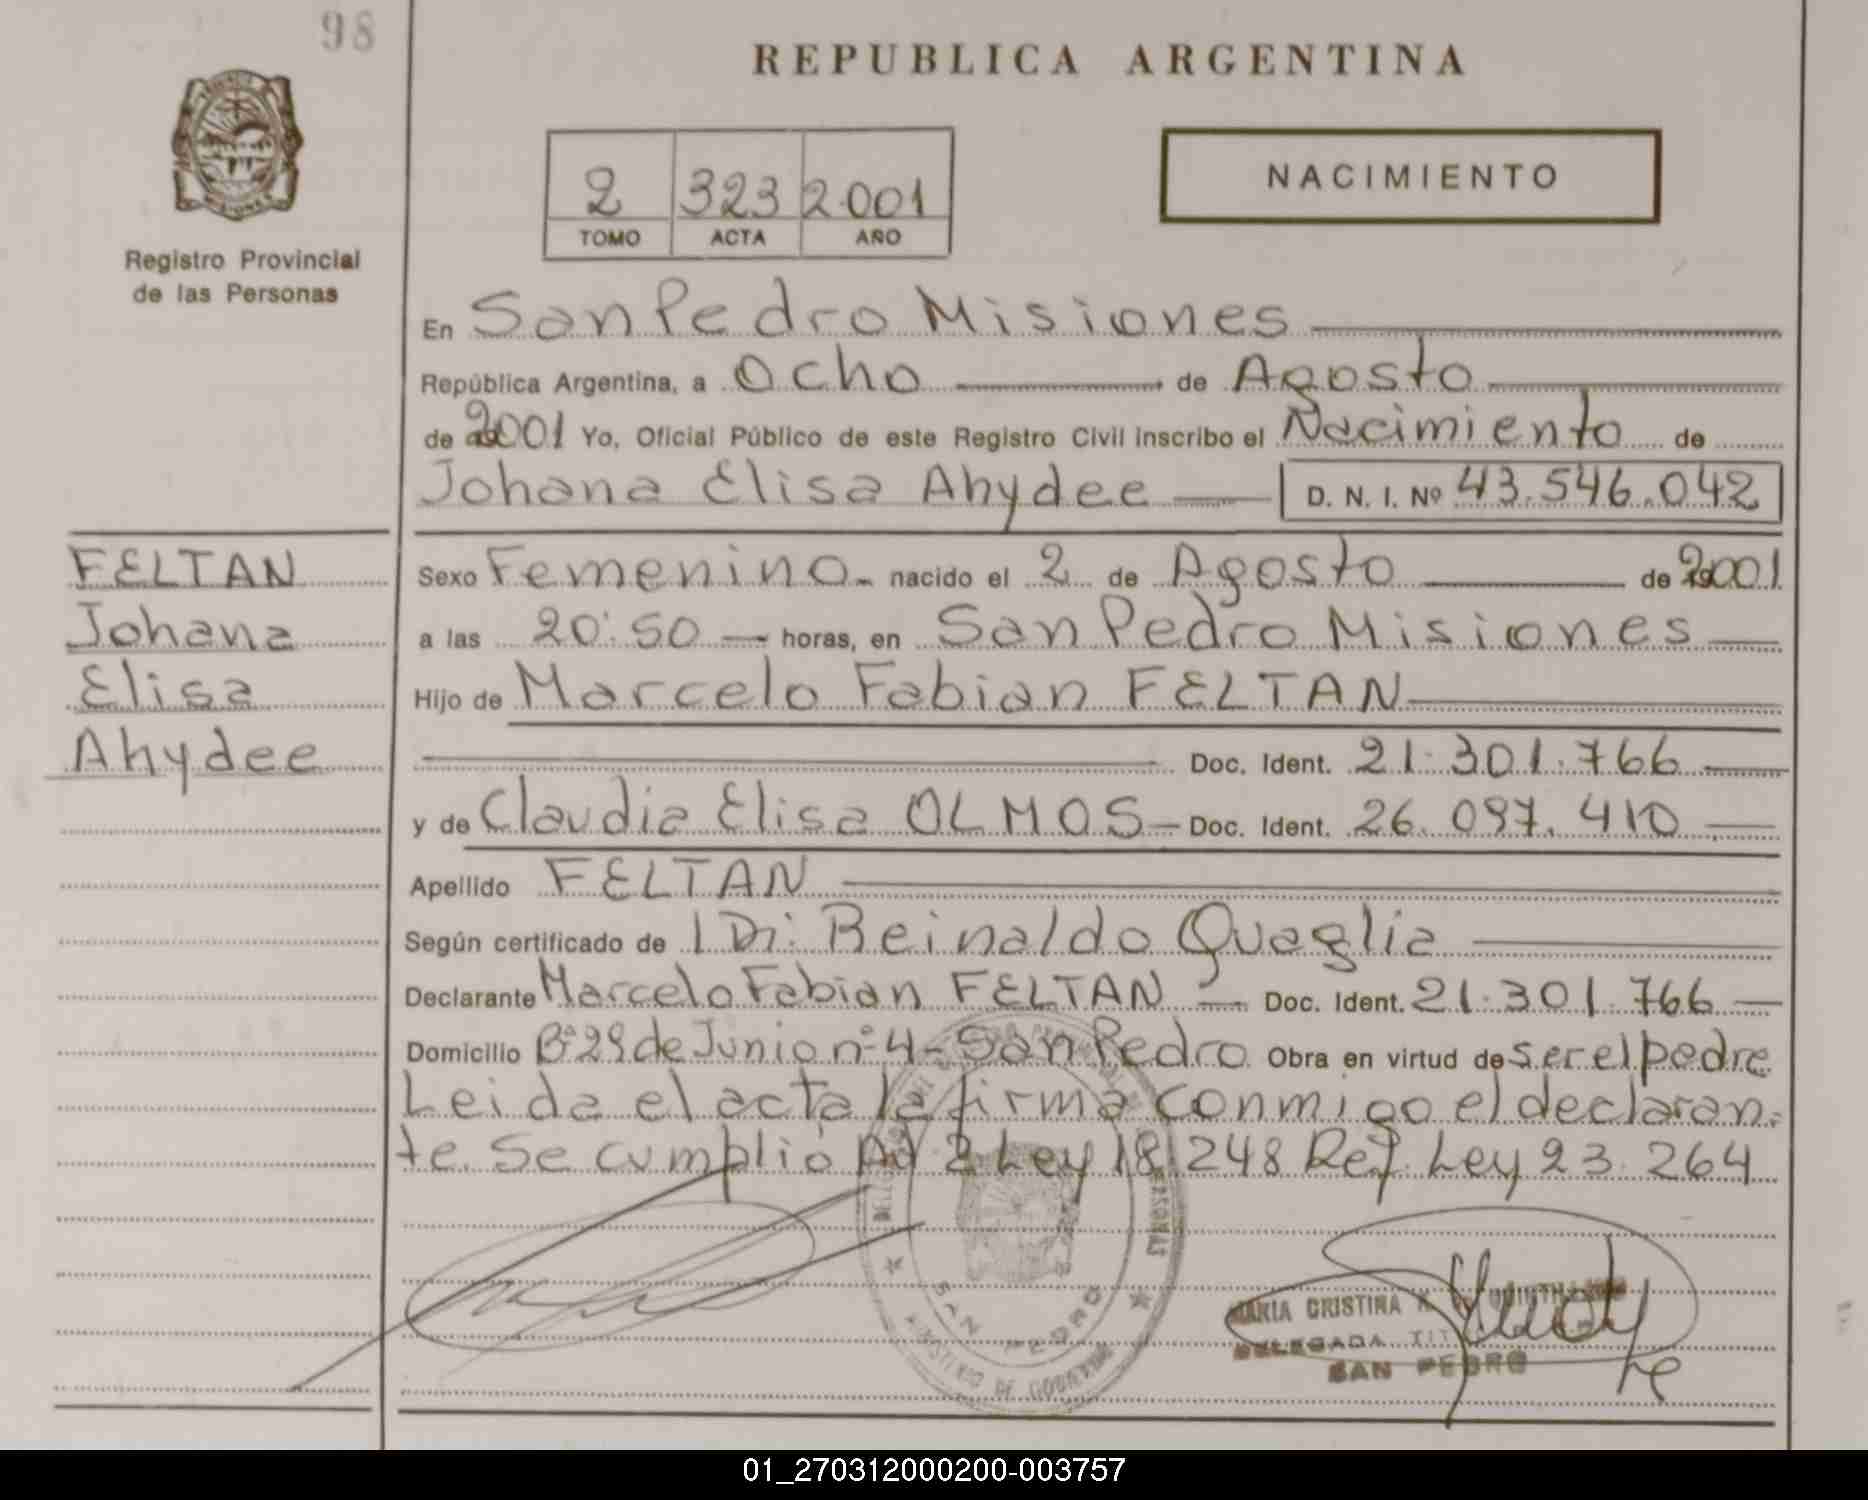 98
REPUBLICA ARGENTINA
2 323 2.001
TOMO ACTA AÑO
NACIMIENTO
Registro Provincial
de las Personas
En San Pedro Misiones
República Argentina, a Ocho de Agosto
de 2001 Yo, Oficial Público de este Registro Civil inscribo el Nacimiento de
Johana Elisa Ahydee D. N. I. Nº 43.546.042
FELTAN
Johana
Elisa
Ahydee
Sexo Femenino nacido el 2 de Agosto de 2001
a las 20:50 horas, en San Pedro Misiones
Hijo de Marcelo Fabian FELTAN
Doc. Ident. 21.301.766
y de Claudia Elisa OLMOS Doc. Ident. 26.097.410
Apellido FELTAN
Según certificado de Reinaldo Quaglia
Declarante Marcelo Fabian FELTAN Doc. Ident. 21.301.766
Domicilio Bº 29 de Junio nº 4 - San Pedro Obra en virtud de ser el padre
Leida el acta la firma conmigo el declaran-
te. Se cumplió 2 Ley 18.248 Ref. Ley 23.264
SAN PEDRO
MINISTERIO DE GOBIERNO
MARIA CRISTINA
DELEGADA
SAN PEDRO
01_270312000200-003757